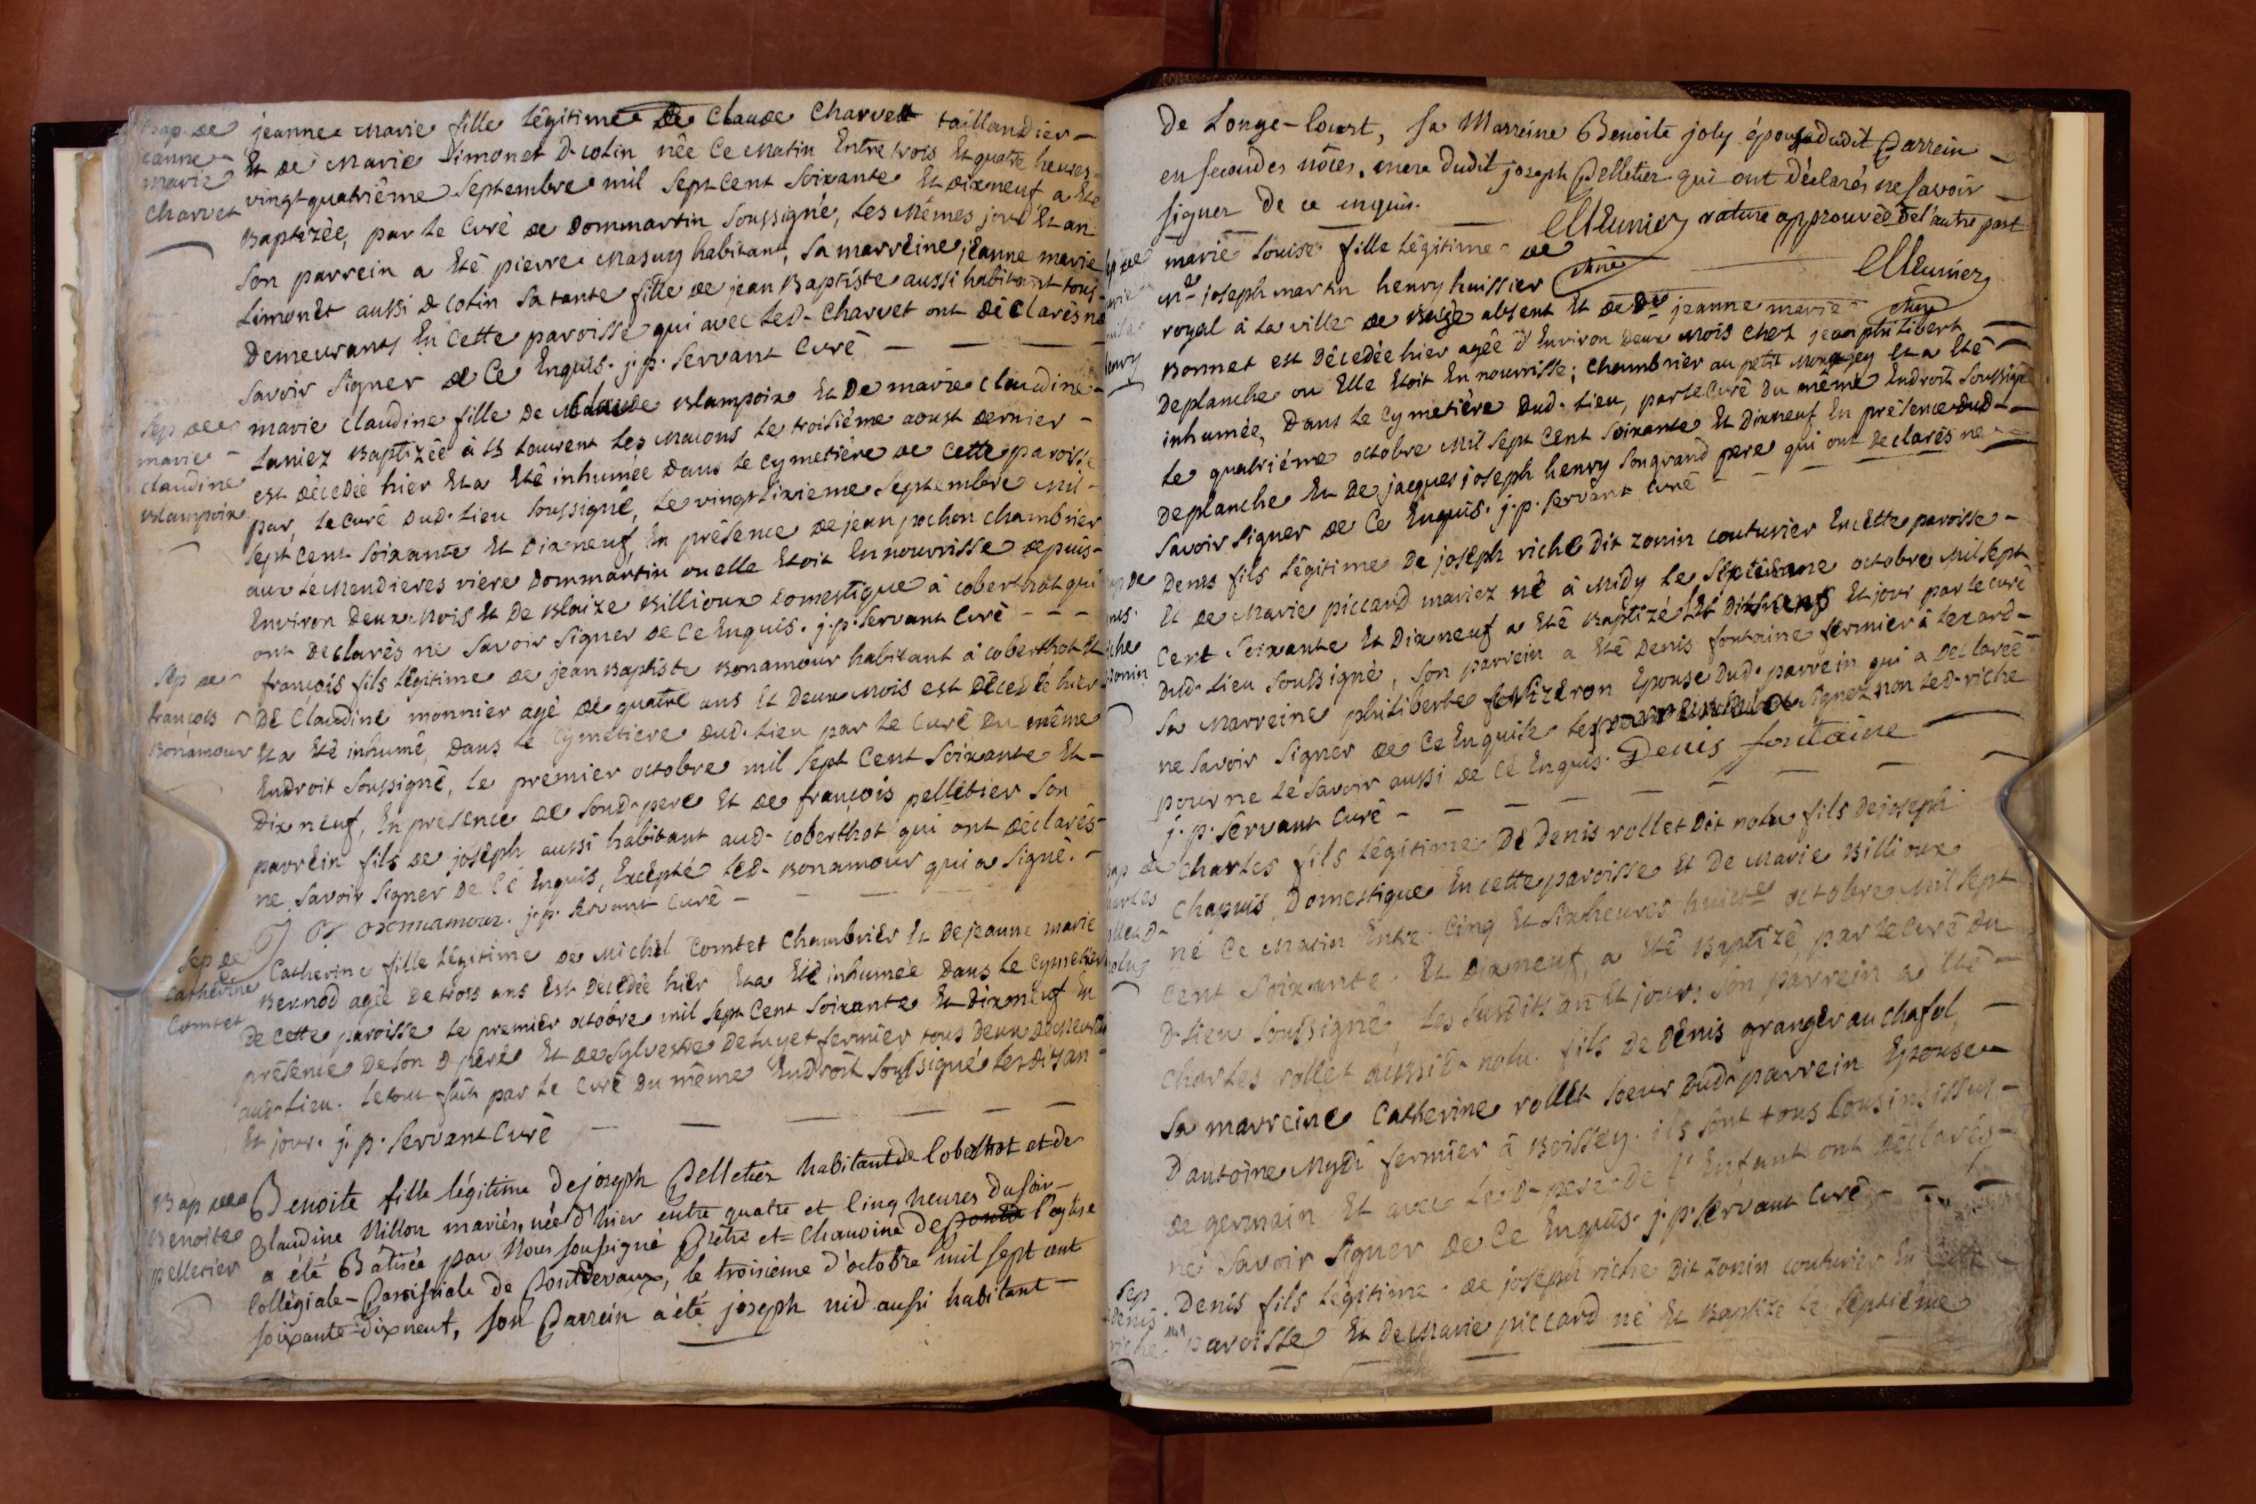 Bap. de
jeanne
marie
Charvet
jeanne Marie fille légitime de Claude Charvet taillandier -
Et de Marie Limonet D. Colin née Ce Matin Entre trois Et quatre heures
vingt quatriême Septembre mil Sept Cent Soixante Et dixneuf a Eté
Baptizée, par Le Curé de Dommartin Soussigné, Les Mêmes jour Et an
Son parrein a Eté pierre Masuy habitant, Sa marreine jeanne marie
Limonet aussi D Colin Sa tante fille de jean Baptiste aussi habitant tous
Demeurants En Cette paroisse qui avec Led. Charvet ont Déclarés ne
Savoir Signer de Ce Enquis. j. p. Servant Curé
Sep de
marie
claudine
Blampoix
marie Claudine fille De Claude Blampoix Et De marie Claudine
Laniez Baptizée à St Laurent Les Macons Le troisiéme aoust dernier -
est décedée hier Et a Eté inhumée Dans Le Cymetière de cette paroisse
par, Le Curé Dud. Lieu Soussigné, Le vingt Sixieme Septembre Mil -
Sept Cent Soixante Et Dixneuf, En présence de jean pochon Chambrier
aux Lemendieres riere Dommartin ou elle Etoit En nourrisse depuis -
Environ Deux Mois Et De Blaize Billioux Domestique à Coberthot qui
ont Declarés ne Savoir Signer de Ce Enquis. j. p. Servant Curé - - -
Sep de
françois
Bonamour
françois fils Légitime de jean Baptiste Bonamour habitant à Coberthot Et
De Claudine monnier agé de quatre ans Et Deux Mois est Décedé hier
Et a Eté inhumé, Dans Le Cymetiere Dud. Lieu par Le Curé Du même
Endroit Soussigné, Le premier octobre mil Sept Cent Soixante Et -
Dixneuf, En présence de Sond. pere Et de françois pelletier Son
parrein fils de joseph aussi habitant aud. Coberthot qui ont Déclarés -
ne Savoir Signer De Ce Enquis, Excepté Led. Bonamour qui a Signé. -
J B Bonnamour. j. p. Servant Curé -
Sep de
Catherine
Comtet
Catherine fille Légitime de Michel Comtet Chambrier Et De jeanne marie
Bernod agée De trois ans Est Décedée hier Et a Eté inhumée Dans Le Cymetiere
De Cette paroisse Le premier octobre mil Sept Cent Soixante Et Dixneuf En
présence De Son D. pere Et de Sylvestre Deluyet fermier tous Deux Demeurants
aud. Lieu. Le tout fait par Le Curé Du même Endroit Soussigné Lesd. an
Et jour. j. p. Servant Curé
Bap de
Benoite
pelletier
Benoite fille légitime de joseph Pelletier habitant de Coberthot et de
Claudine Nillon mariés, née d'hier entre quatre et cinq heures du soir -
a été Batisée par Nous soussigné Prêtre et Chanoine de l'eglise
Collégiale - Paroissiale de Pontdevaux, le troisième d'octobre mil sept cent
soixante-dixneuf, son Parrein a été joseph nid aussi habitant -
De Longe-court, sa Marreine Benoite joly épouse dudit Parrein -
en secondes nôces, mere dudit joseph Pelletier qui ont déclarés ne savoir -
signer de ce enquis.
Meunier rature approuvée de l'autre part
Meunier
henry
marie Louise fille Légitime de
Mre joseph martin henry huissier
royal à La ville de Baugé absent Et de De jeanne marie
Bonnet est Décedée hier agée d'Environ Deux Mois Chez jean philibert
Deplanche ou Elle Etoit En nourrisse; Chambrier au petit Et a Eté
inhumée, Dans Le Cymetière Dud. Lieu, par Le Curé Du même Endroit Soussigné
Le quatriéme octobre Mil Sept Cent Soixante Et Dixneuf En présence Dud -
Deplanche Et De jacques joseph henry Son grand pere qui ont Declarés ne
Savoir Signer de Ce Enquis. j. p. Servant Curé
Denis fils Légitime De joseph riche Dit Zonin couturier En Cette paroisse -
Et de Marie piccard mariez né à Midy Le Septiéme octobre Mil Sept
Cent Soixante Et Dixneuf a Eté Baptizé Et jour par Le Curé
Dud. Lieu Soussigné, Son parrein a Eté Denis fontaine fermier à Lezard -
Sa Marreine philiberte Epouse Dud. parrein qui a Declarée
ne Savoir Signer de Ce Enquise Signez non Led. riche
pour ne Le Savoir aussi de Ce Enquis. Denis fontaine
j. p. Servant Curé -
Bap de
Charles fils Légitime De Denis rollet Dit nolu fils De joseph
Chapuis Domestique En Cette paroisse Et De Marie Billioux
né Ce Matin Entre Cinq Et Six heures huit octobre Mil Sept
Cent Soixante Et Dixneuf, a Eté Baptizé, par Le Curé Du
D. Lieu Soussigné, Les Susdits an Et jour, Son parrein a Eté -
Charles rollet aussi D. nolu. fils De Denis granger au Chafal, -
Sa marreine Catherine rollet Soeur Dud. parrein Epouse
D'antoine Mydi fermier à Boissey. ils Sont tous Cousins issus -
de germain Et avec Led. pere De l'Enfant ont Déclarés -
ne Savoir Signer De Ce Enquis. j. p. Servant Curé -
Sep
Denis
riche
Denis fils Légitime de joseph riche Dit Zonin couturier En Cette
paroisse Et De Marie piccard né Et Baptizé Le Septiéme